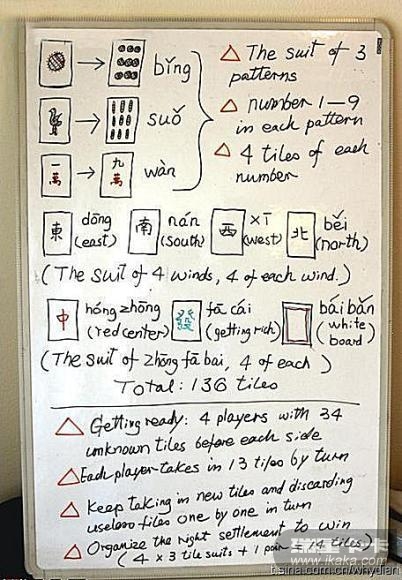 bǐng
suǒ
一萬
九萬
wàn
△ The suit of 3
patterns
△ number 1—9
in each pattern
△ 4 tiles of each
number
東 dōng
(east)
南 nán
(south)
西 xī
(west)
北 běi
(north)
(The suit of 4 winds, 4 of each wind.)
中 hóng zhōng
(red center)
發 fā cái
(getting rich)
bái bǎn
(white
board)
(The suit of zhōng fā bai, 4 of each)
Total: 136 tiles
△ Getting ready: 4 players with 34
unknown tiles before each side
△ Each player takes in 13 tiles by turn
△ Keep taking in new tiles and discarding
useless tiles one by one in turn
△ Organize the right settlement to win
(4 × 3 tile suits + 1 pair 14 tiles)
www.ikaka.com
t.sina.com.cn/whydian